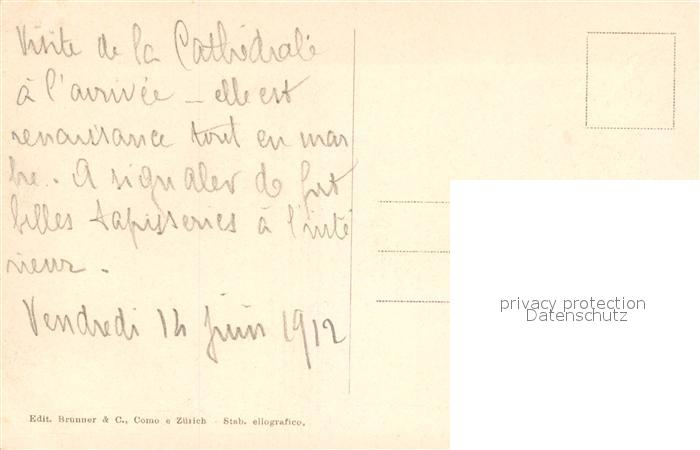 Visite de la Cathédrale
à l'arrivée – elle est
renaissance tout en mar
bre. A signaler de fort
belles tapisseries à l'inté
rieur.
Vendredi 14 Juin 1912
Edit. Brunner & C., Como e Zürich - Stab. eliografico.
privacy protection
Datenschutz